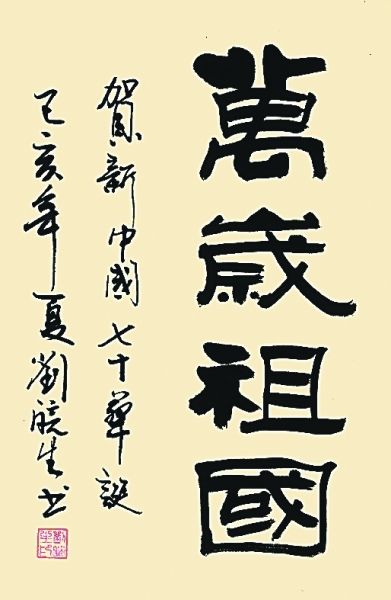 萬歲祖國
賀新中國七十華誕
己亥年夏劉生书